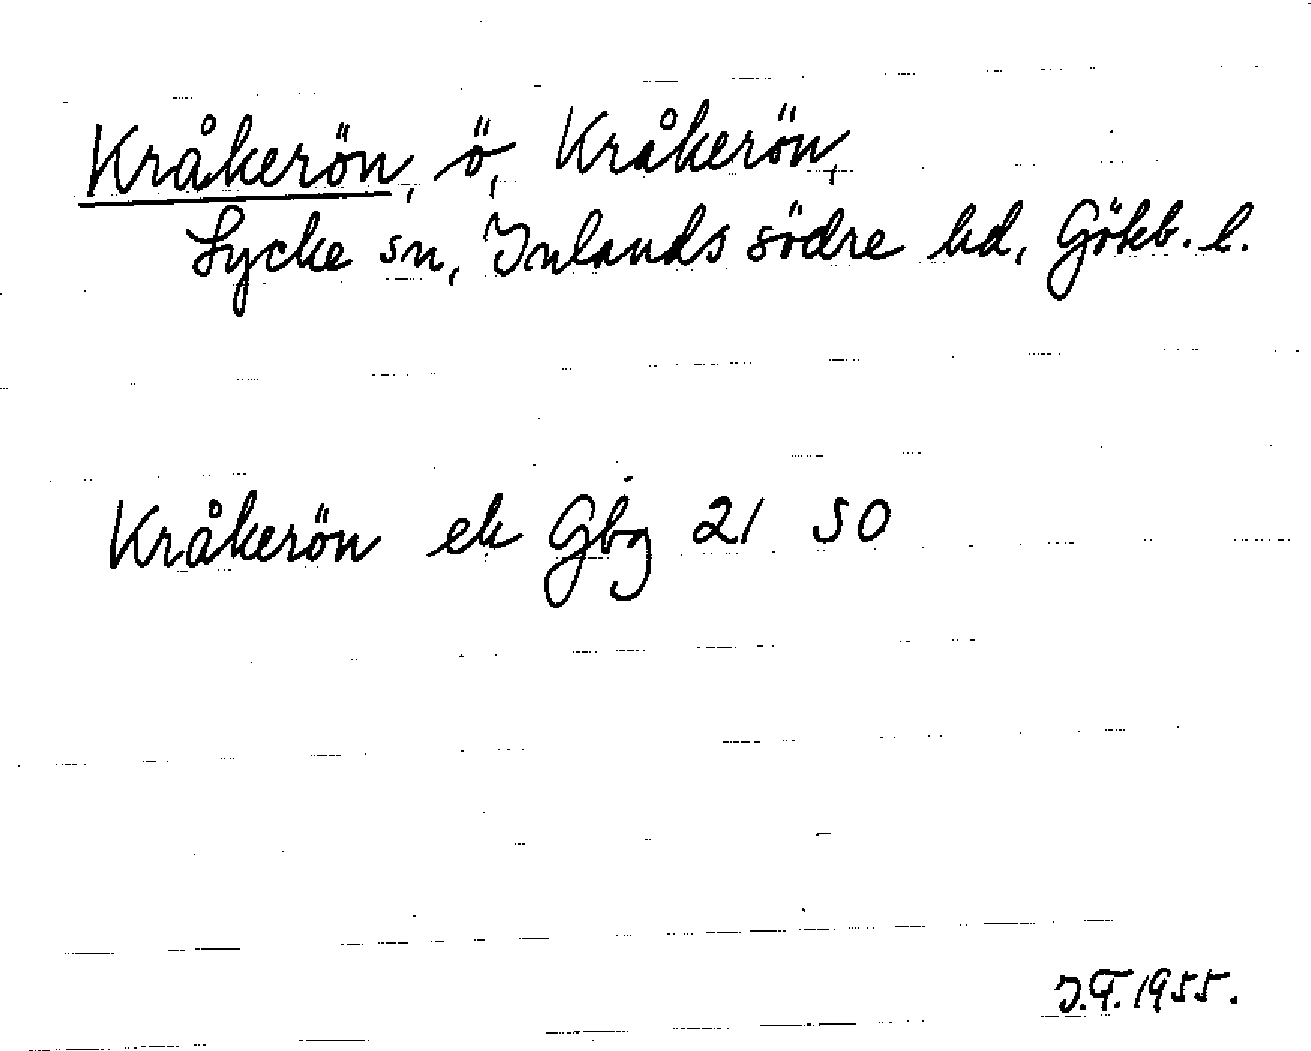 Kråkerön, ö, Kråkerön,
Lycke sn, Inlands södre hd, Götb. l.
Kråkerön ek Gbg 21 50
J.T. 1955.